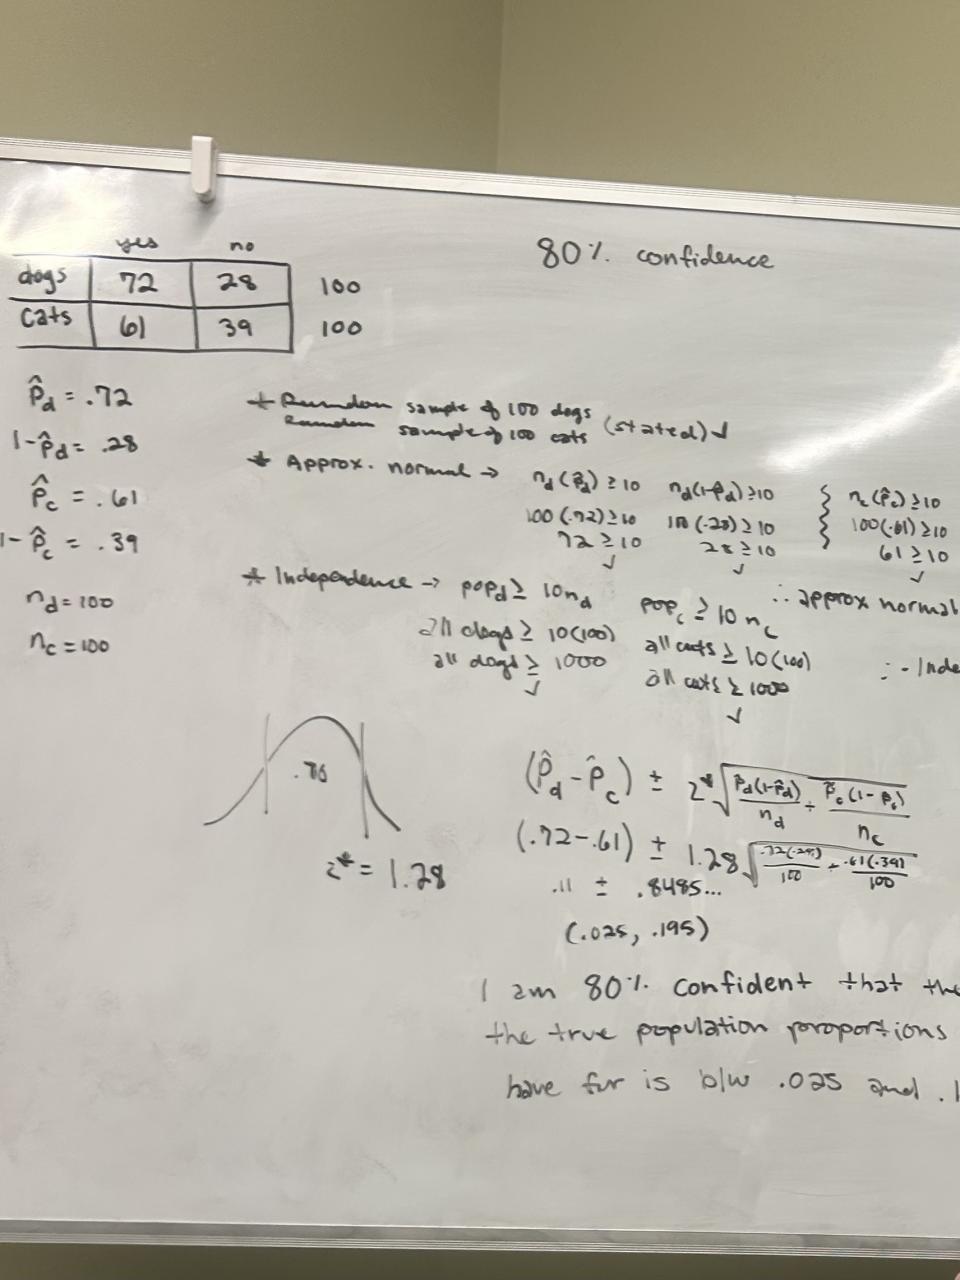 yes no
dogs 72 28 100
cats 61 39 100
80% confidence
p̂d = .72
1-p̂d = .28
p̂c = .61
1-p̂c = .39
nd = 100
nc = 100
* Random sample of 100 dogs
Random sample of 100 cats (stated) ✓
* Approx. normal → nd(p̂d) ≥ 10 nd(1-p̂d) ≥ 10 nc(p̂c) ≥ 10
100(.72) ≥ 10 100(.28) ≥ 10 100(.61) ≥ 10
72 ≥ 10 28 ≥ 10 61 ≥ 10
✓ ✓ ✓
∴ approx normal
* Independence → popd ≥ 10nd popc ≥ 10nc
all dogs ≥ 10(100) all cats ≥ 10(100)
all dogs ≥ 1000 all cats ≥ 1000
✓ ✓
∴ Inde
z* = 1.28
(p̂d - p̂c) ± z*√(p̂d(1-p̂d)/nd + p̂c(1-p̂c)/nc)
(.72-.61) ± 1.28√(.72(.28)/100 + .61(.39)/100)
.11 ± .8485...
(.025, .195)
I am 80% confident that the
the true population proportions
have fur is b/w .025 and .1